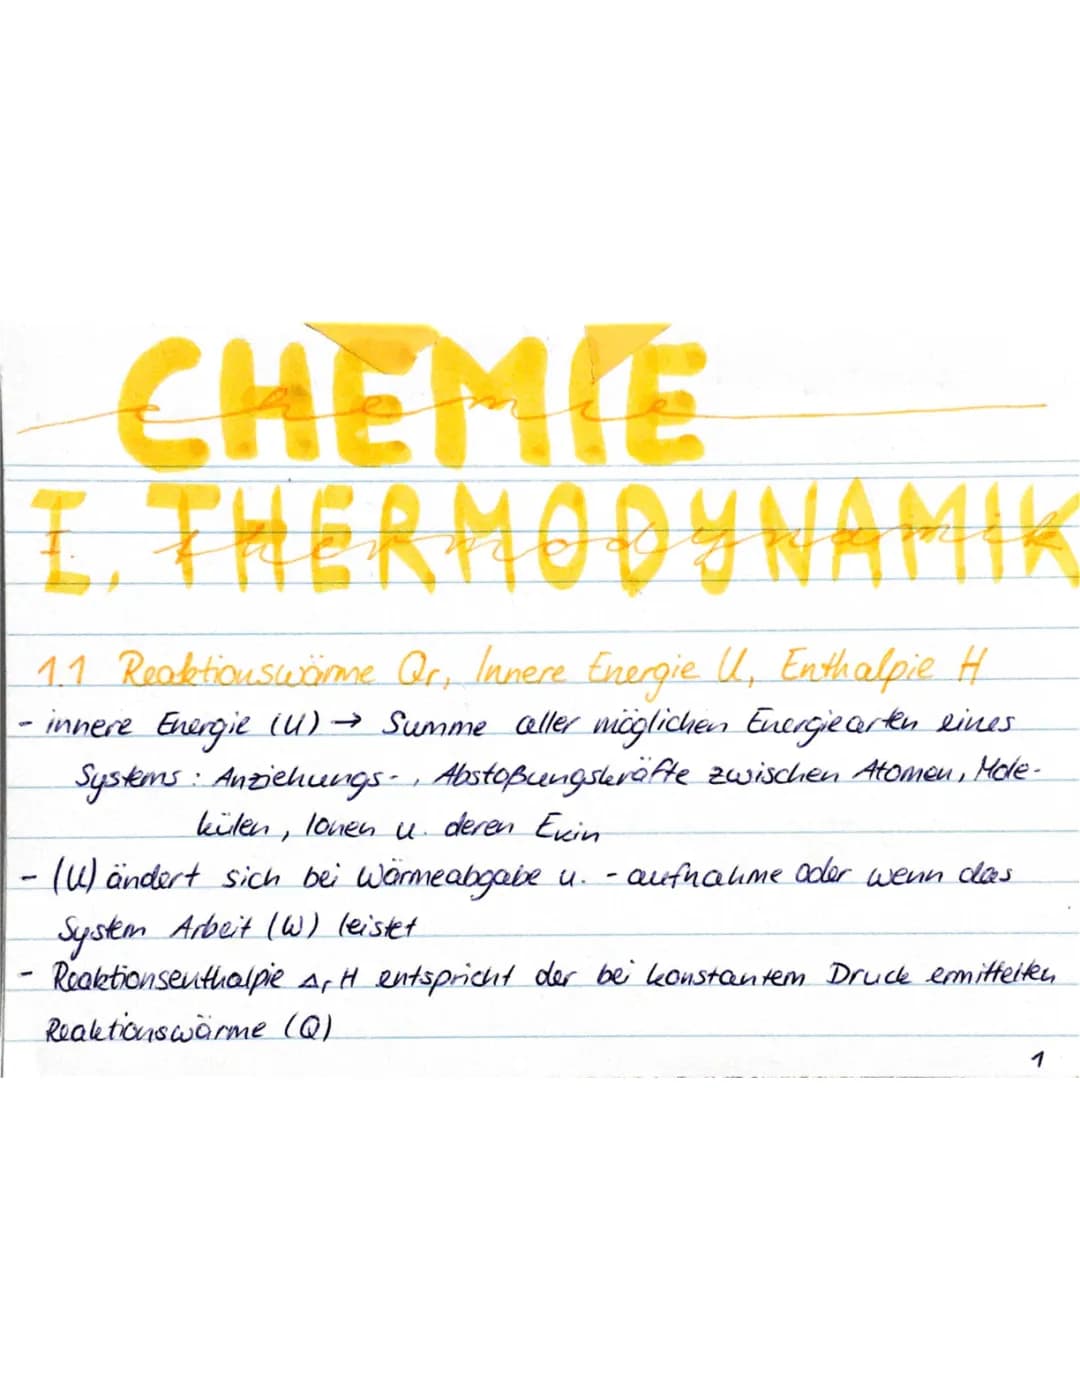 CHEMIE
chemie
I. THERMODYNAMIK
I. thermodynamik
1.1 Reaktionswärme Qr, Innere Energie U, Enthalpie H
- innere Energie (U) → Summe aller möglichen Energiearten eines
Systems: Anziehungs-, Abstoßungskräfte zwischen Atomen, Mole-
külen, Ionen u. deren Ekin
- (U) ändert sich bei Wärmeabgabe u. -aufnahme oder wenn das
System Arbeit (W) leistet
- Reaktionsenthalpie ΔrH entspricht der bei konstantem Druck ermittelten
Reaktionswärme (Q)
1